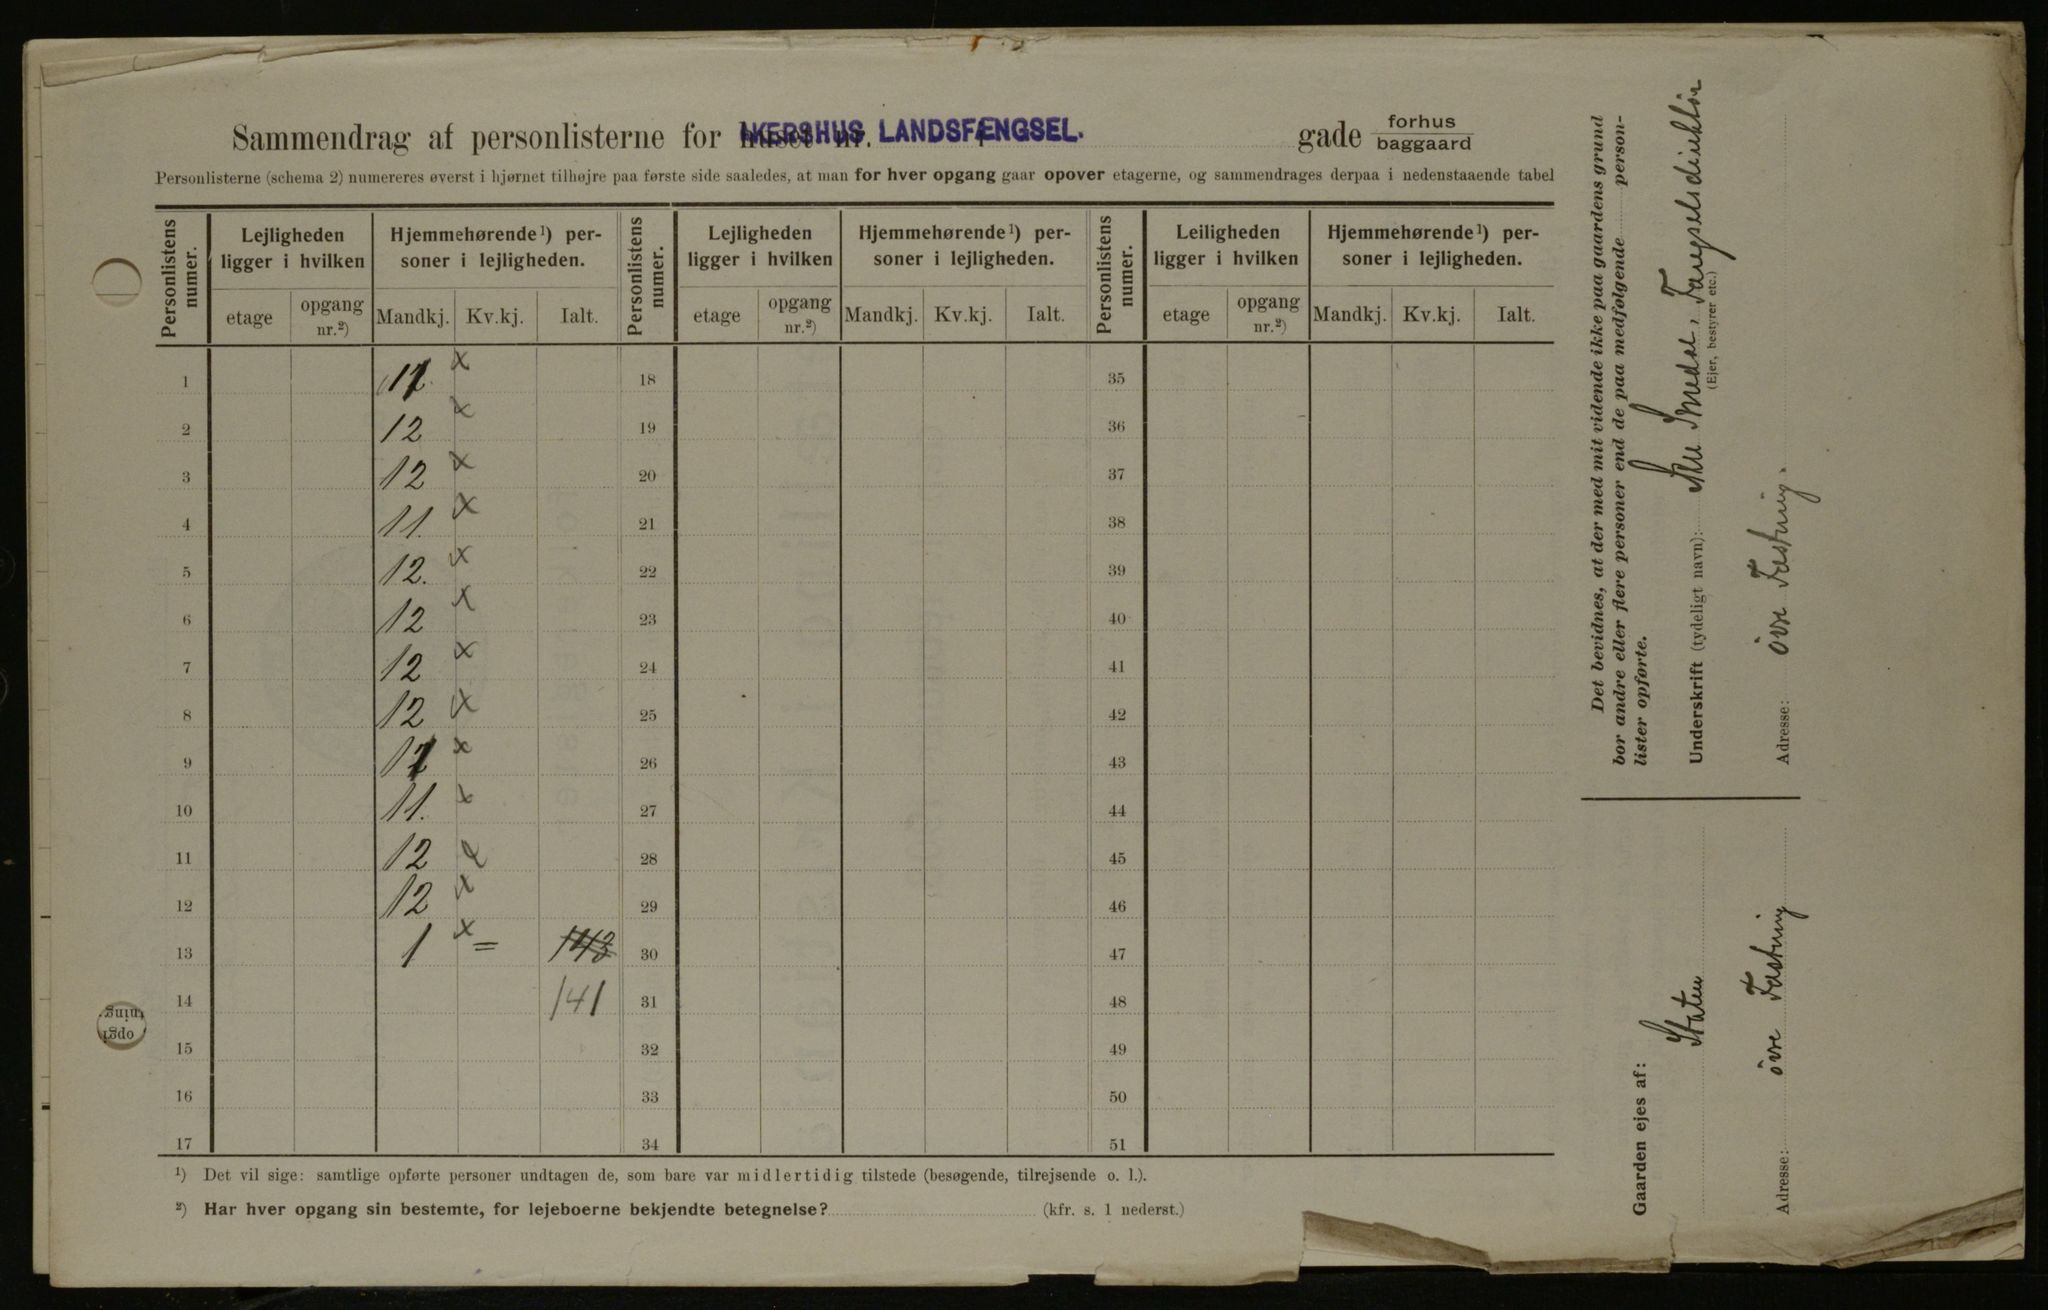 Sammendrag af personlisterne for huset nr. AKERSHUS LANDSFÆNGSEL. gade forhus baggaard
Personlisterne (schema 2) numereres øverst i hjørnet tilhøjre paa første side saaledes, at man for hver opgang gaar opover etagerne, og sammendrages derpaa i nedenstaaende tabel
Personlistens numer.
Lejligheden ligger i hvilken
etage
opgang nr.²)
Hjemmehørende¹) personer i lejligheden.
Mandkj.
Kv.kj.
Ialt.
Personlistens numer.
Lejligheden ligger i hvilken
etage
opgang nr.²)
Hjemmehørende¹) personer i lejligheden.
Mandkj.
Kv.kj.
Ialt.
Personlistens numer.
Leiligheden ligger i hvilken
etage
opgang nr.²)
Hjemmehørende¹) personer i lejligheden.
Mandkj.
Kv.kj.
Ialt.
1 x 18 35
2 12 x 19 36
3 12 x 20 37
4 11. x 21 38
5 12. x 22 39
6 12 x 23 40
7 12 x 24 41
8 12 x 25 42
9 x 26 43
10 11. x 27 44
11 12 x 28 45
12 12 x 29 46
13 1 x = 143 30 47
14 141 31 48
15 32 49
16 33 50
17 34 51
¹) Det vil sige: samtlige opførte personer undtagen de, som bare var midlertidig tilstede (besøgende, tilrejsende o. l.).
²) Har hver opgang sin bestemte, for lejeboerne bekjendte betegnelse? (kfr. s. 1 nederst.)
Det bevidnes, at der med mit vidende ikke paa gaardens grund
bor andre eller flere personer end de paa medfølgende person-
lister opførte.
Underskrift (tydeligt navn): Smedal, Fængselsdirektör
(Ejer, bestyrer etc.)
Adresse: övre Fæstning.
Gaarden ejes af:
Staten
Adresse: övre Fæstning